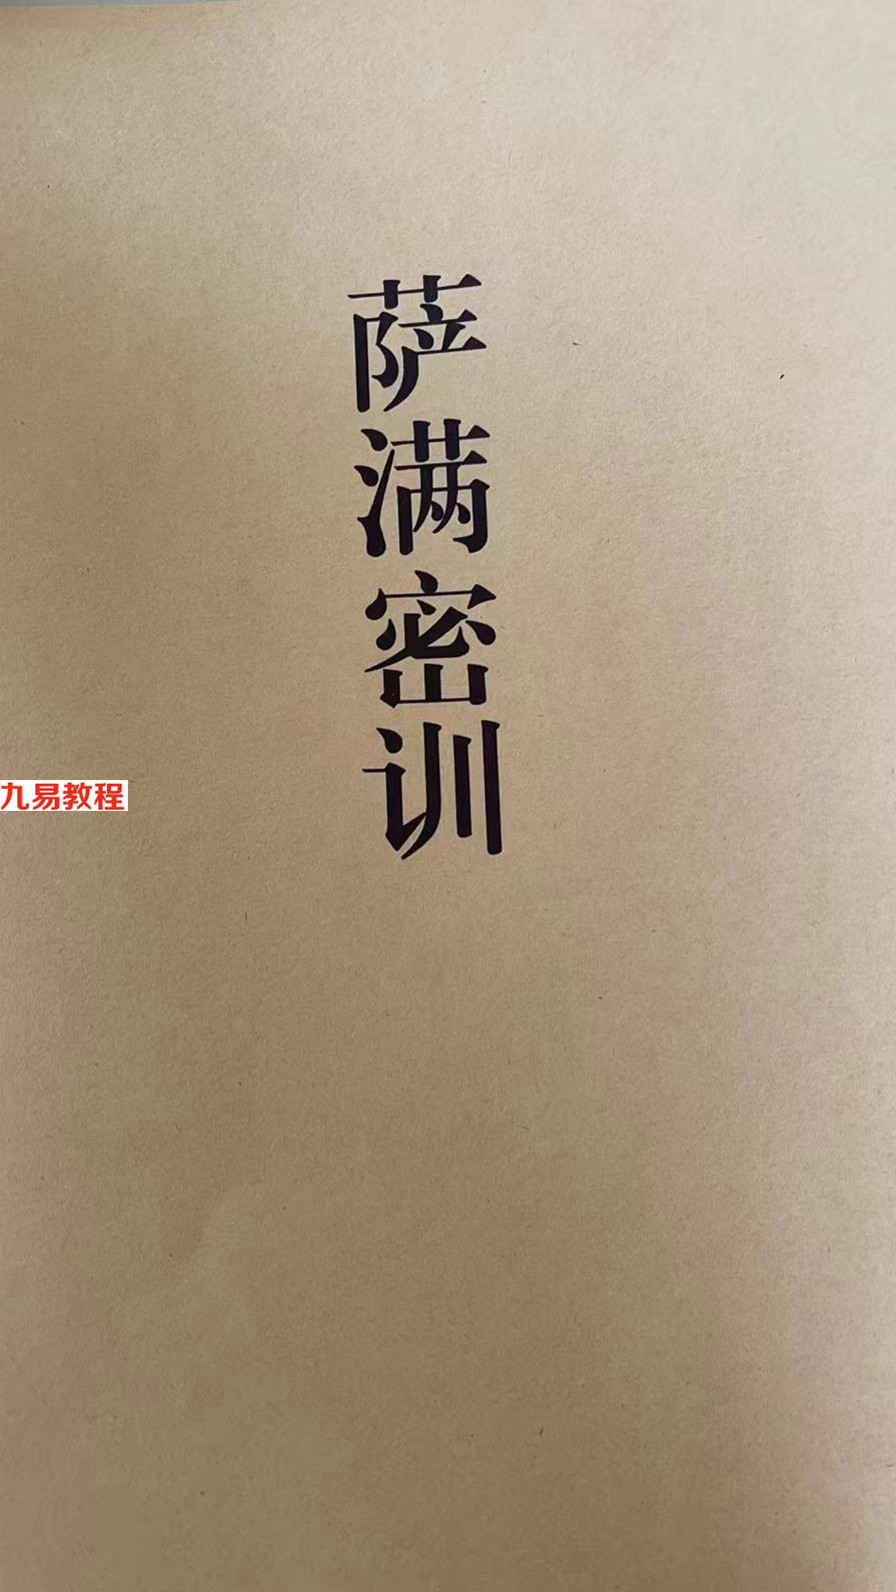 萨满密训
九易教程